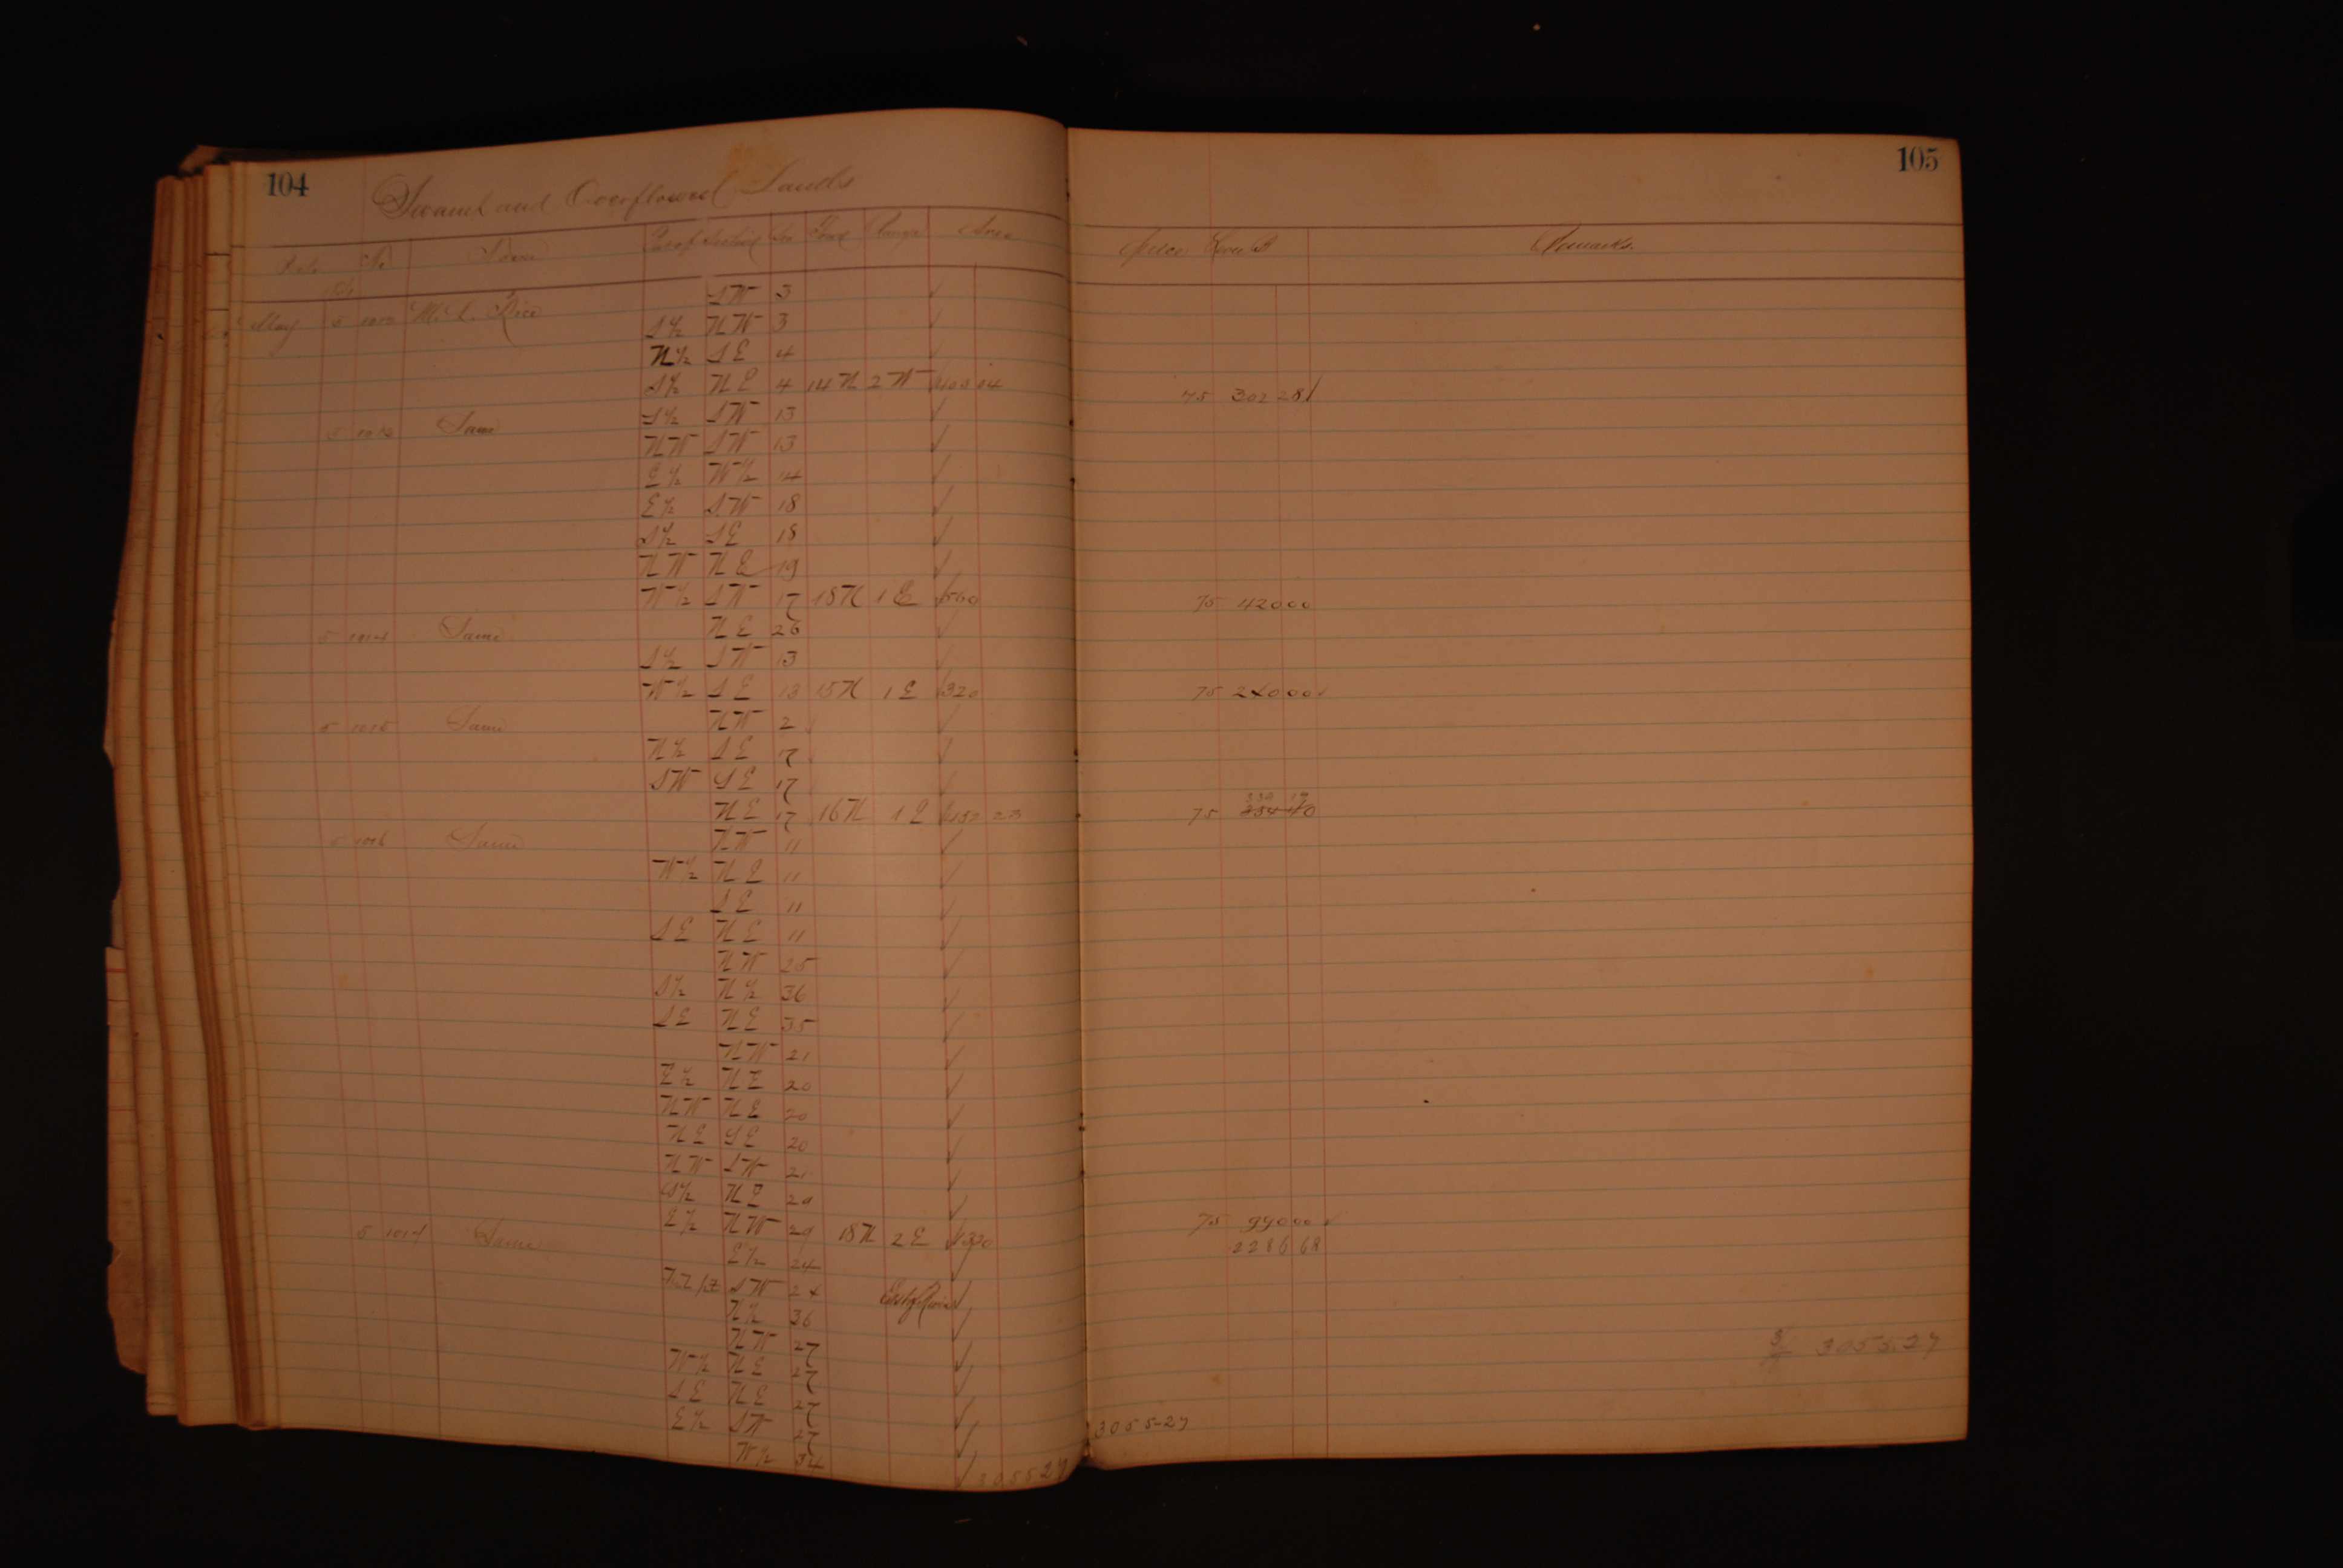 104
Swamp and Overflowed Lands
Date No Name Part of Section Sec Town Range Area
SW 3
May 5 1012 M. L. Rice S½ NW 3
N½ SE 4
S½ NE 4 14N 2W 403 04
5 1013 Same S½ SW 13
NW SW 13
E½ W½ 14
E½ SW 18
S½ SE 18
NW NE 19
W½ SW 17 18N 1E 560
5 1014 Same NE 26
S½ SW 13
W½ SE 13 15N 1E 320
5 1015 Same NW 2
N½ SE 17
SW SE 17
NE 17 16N 1E 452 23
5 1016 Same NW 11
W½ NE 11
SE 11
SE NE 11
NW 25
S½ N½ 36
SE NE 35
NW 21
E½ NE 20
NW NE 20
NE SE 20
NW SW 21
S½ NE 29
E½ NW 29 18N 2E 1320
5 1017 Same E½ 24
SW 24 East of River
N½ 36
NW 27
W½ NE 27
SE NE 27
E½ SW 27
W½ 34
3055 27
105
Price Remarks
75 302 28
75 420 00
75 240 00
339 19
75 354 40
75 990 00
2286 68
3055.27
3055-27